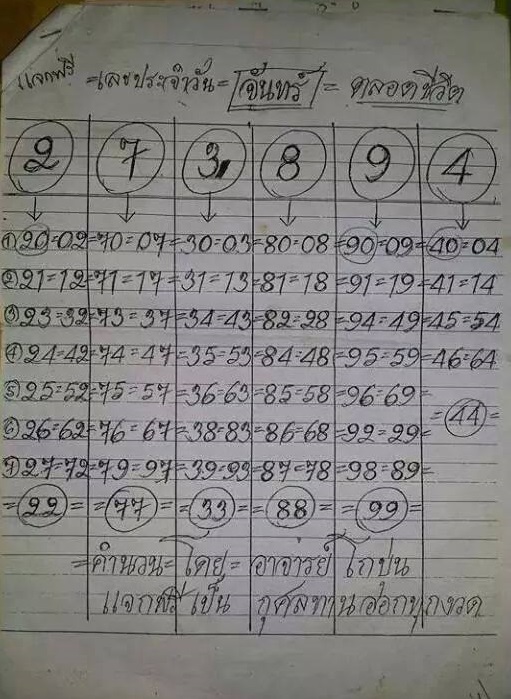 แจกฟรี =เลขประจำวัน= จันทร์ = ตลอดชีวิต
2 7 3 8 9 4
①20=02=70=07=30=03=80=08=90=09=40=04
②21=12=71=17=31=13=81=18=91=19=41=14
③23=32=73=37=34=43=82=28=94=49=45=54
④24=42=74=47=35=53=84=48=95=59=46=64
⑤25=52=75=57=36=63=85=58=96=69=
=44=
⑥26=62=76=67=38=83=86=68=92=29=
⑦27=72=79=97=39=93=87=78=98=89=
=22= =77= =33= =88= =99=
=คำนวน=โดย= อาจารย์ โกปุ่น
แจกฟรี เป็น กุศลทาน ออกทุกงวด